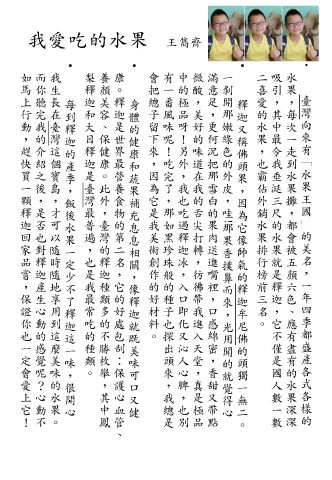 我愛吃的水果 王雋齊
臺灣向來有「水果王國」的美名，一年四季都盛產各式各樣的
水果，每次一走到水果攤，都會被五顏六色、應有盡有的水果深深
吸引，其中最令我垂涎三尺的水果就是釋迦，它不僅是國人數一數
二喜愛的水果，也霸佔外銷水果排行榜前三名。
釋迦又稱佛頭果，因為它像帥氣的釋迦牟尼佛的頭獨一無二。
一剝開那嫩綠色的外皮，哇！那果香撲鼻而來，光用聞的就覺得心
滿意足，更何況把那雪白的果肉送進嘴裡，口感綿密，香甜又帶點
微酸，美好的味道在我的舌尖打轉，彷彿帶我進入天堂，真是極品
中的極品呀！另外，我也吃過釋迦冰，入口即化又沁人心脾，也別
有一番風味呢！吃完了，那如黑珍珠般的種子也探出頭來，我總是
會把種子留下來，因為它是我美術創作的好材料。
身體的健康和蔬果補充息息相關，像釋迦就既美味可口又健
康。釋迦是世界最營養食物的第二名，它的好處包刮：保護心血管、
養顏美容、保健康。此外，臺灣的釋迦種類多的不勝枚舉，其中鳳
梨釋迦和大目釋迦是臺灣最普遍，也是我最常吃的種類。
每到釋迦的產季，飯後水果一定少不了釋迦這一味，很開心
我生長在臺灣這個寶島，才可以隨時隨地享用到這麼美味的水果。
而你聽完我的介紹之後，是否也對釋迦產生心動的感覺呢？心動不
如馬上行動，趕快買一顆釋迦回家品嘗，保證你也一定會愛上它！